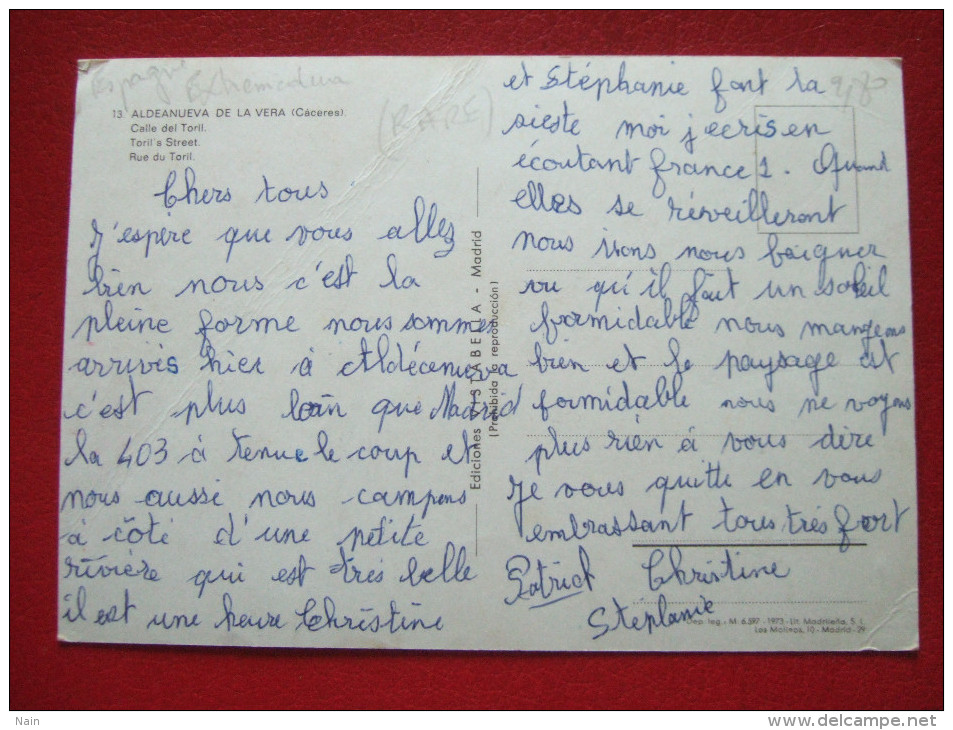 Espagne
Extremadura
(RARE)
13. ALDEANUEVA DE LA VERA (Cáceres).
Calle del Toril.
Toril's Street.
Rue du Toril.
Chers tous
J'espère que vous allez
bien nous c'est la
pleine forme nous sommes
arrivés hier à Aldécenueva
c'est plus loin que Madrid
la 403 à tenue le coup et
nous aussi nous campons
à côté d'une petite
rivière qui est très belle
il est une heure Christine
Ediciones VISTABELLA - Madrid
(Prohibida la reproducción)
et Stéphanie font la
sieste moi j'ecris en
écoutant france 1. Quand
elles se réveilleront
nous irons nous baigner
vu qu'il fait un soleil
formidable nous mangeons
bien et le paysage est
formidable nous ne voyons
plus rien à vous dire
Je vous quitte en vous
embrassant tous très fort
Patrick Christine
Stéplanie
Dep. leg.: M. 6.597 - 1973 - Lit. Madrileña, S. L.
Los Molinos, 10 - Madrid - 29
Nain
http://www.delcampe.net